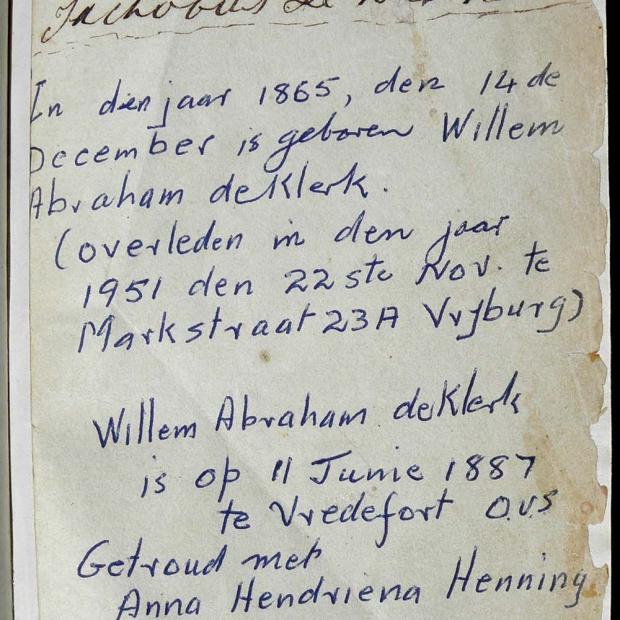 In den jaar 1865, den 14de
December is geboren Willem
Abraham de Klerk.
(overleden in den jaar
1951 den 22ste Nov. te
Markstraat 23A Vryburg)
Willem Abraham de Klerk
is op 11 Junie 1887
te Vredefort O.V.S
Getroud met
Anna Hendriena Henning